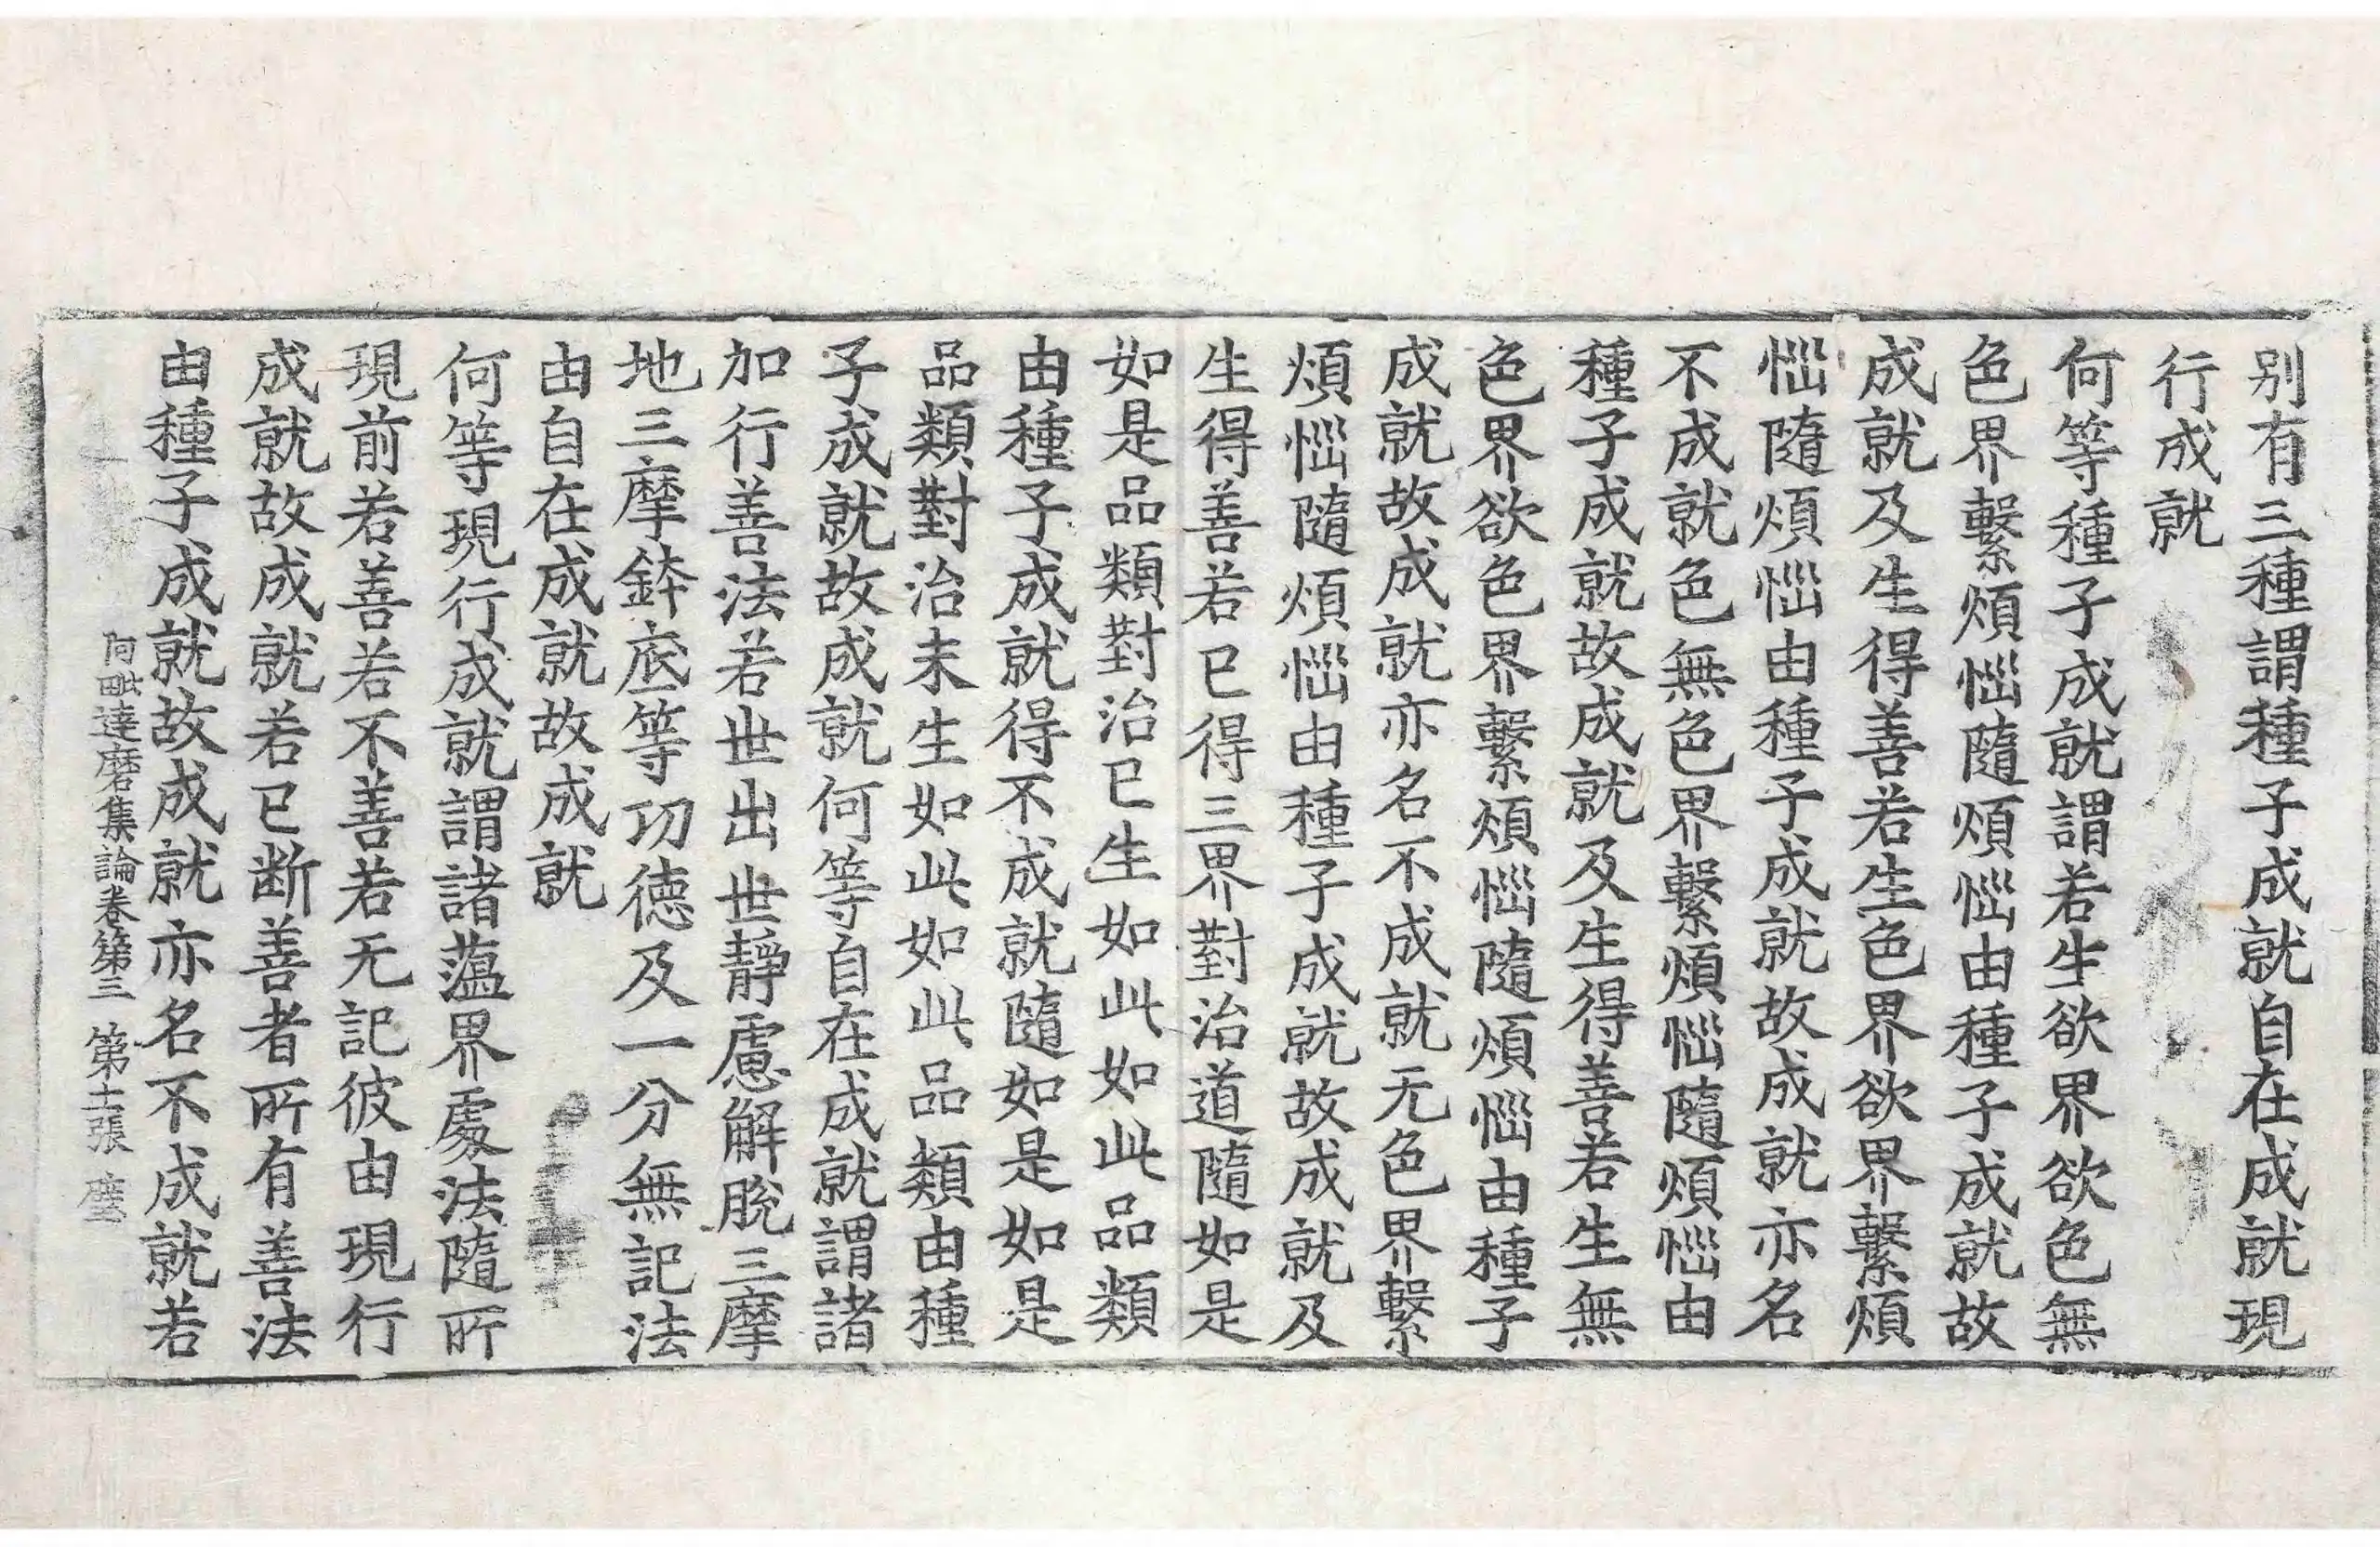 别有三種謂種子成就自在成就現
行成就
何等種子成就謂若生欲界欲色無
色界繫煩惱隨煩惱由種子成就故
成就及生得善若生色界欲界繫煩
惱隨煩惱由種子成就故成就亦名
不成就色無色界繫煩惱隨煩惱由
種子成就故成就及生得善若生無
色界欲色界繫煩惱隨煩惱由種子
成就故成就亦名不成就无色界繫
煩惱隨煩惱由種子成就故成就及
生得善若已得三界對治道隨如是
如是品類對治已生如此如此品類
由種子成就得不成就隨如是如是
品類對治未生如此如此品類由種
子成就故成就何等自在成就謂諸
加行善法若世出世靜慮解脫三摩
地三摩鉢底等功德及一分無記法
由自在成就故成就
何等現行成就謂諸蕰界處法隨所
現前若善若不善若无記彼由現行
成就故成就若已断善者所有善法
由種子成就故成就亦名不成就若
阿毗達磨集論卷第三 第十二張